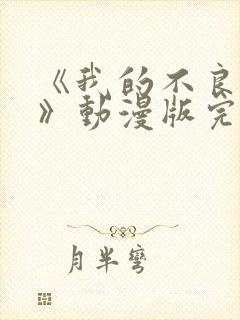 《我的不良
》動漫版完
月半彎